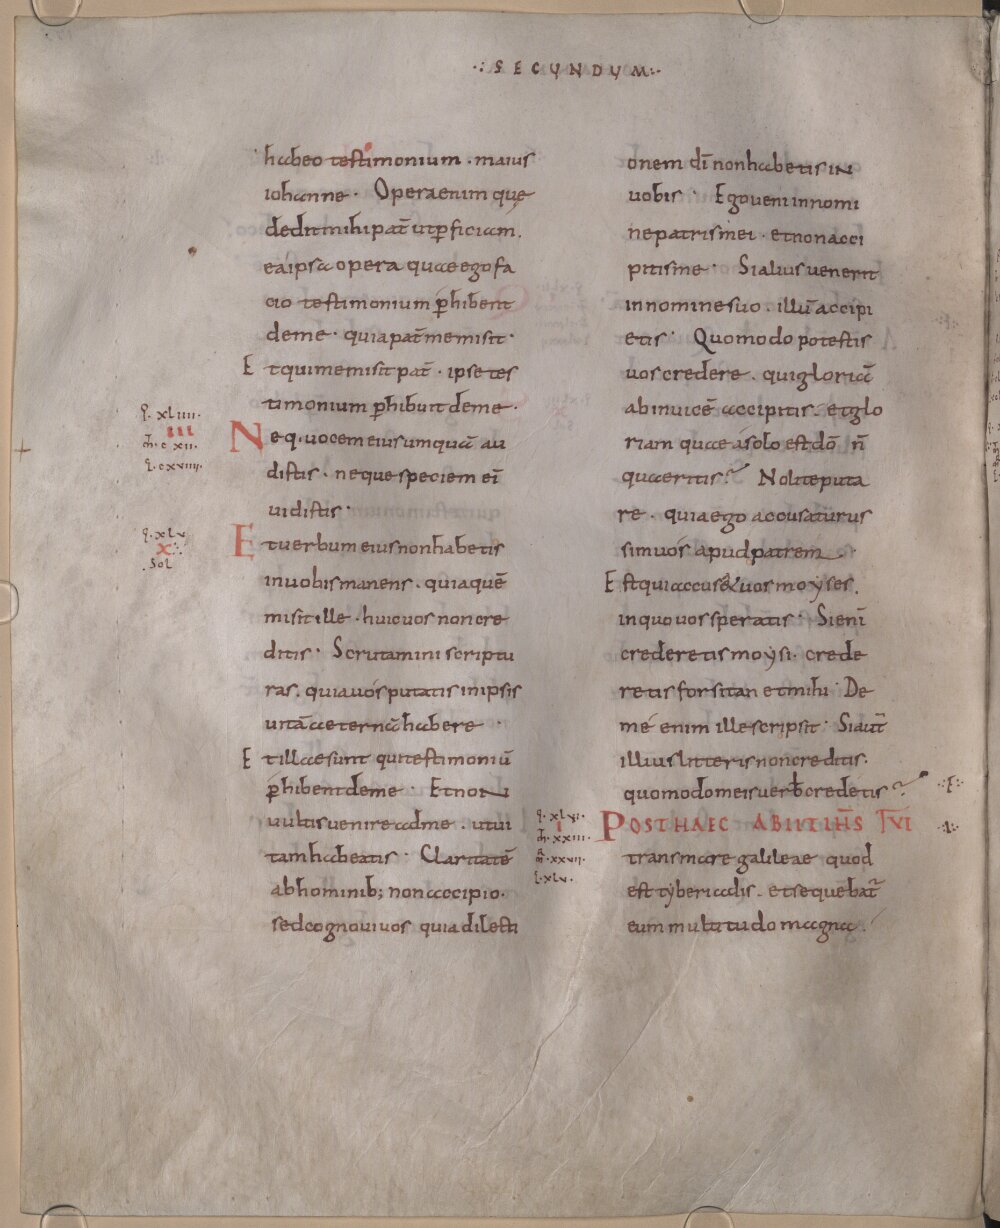 ·:SECUNDUM:·
habeo testimonium · maius
iohanne · Opera enim que
dedit mihi pat̄ ut ꝑficiam.
ea ipsa opera quae ego fa
cio testimonium ꝑhibent
de me · quia pat̄ me misit ·
Et qui me misit pat̄ · ipse tes
timonium ꝑhibuit de me ·
ꝗ. xliiii.
iii
m̄. cxii.
l. cxviiii.
Neq· vocem eius umquā au
distis · neque speciem ei᷒
uidistis ·
ꝗ. xlv
x
. Sol
Et uerbum eius non habetis
in uobis manens · quia quē
misit ille · huic uos non cre
ditis · Scrutamini scriptu
ras. quia uos putatis in ipsis
uitā aeternā habere ·
Et illae sunt quae testimoniū
ꝑhibent de me · Et non
uultis venire ad me · ut ui
tam habeatis · Claritatē
ab hominib; non accipio ·
sed cognoui uos quia dilecti
onem dī non habetis in
uobis · Ego veni in nomi
ne patris mei · et non acci
pitis me · Si alius venerit
in nomine suo · illū accipi
etis · Quomodo potestis
uos credere · qui gloriā
ab inuicē accipitis · et glo
riam quae a solo est dō n̄
quaeritis? Nolite puta
re · quia ego accusaturus
sim uos apud patrem ·
Est qui accus&uos moẏses.
in quo uos speratis · Si enī
crederetis moẏsi · crede
retis forsitan et mihi · De
me enim ille scripsit · Si aut̄
illius litteris non creditis ·
quomodo meis verb̄ credetis?
ꝗ. xlvi.
i
m̄. xxiii.
m̄. xxvii.
l. xlv.
POST HAEC ABIIT IH̄S T̄VI
trans mare galileae quod
est tyberiadis · et sequebat᷑
eum multitudo magna ·